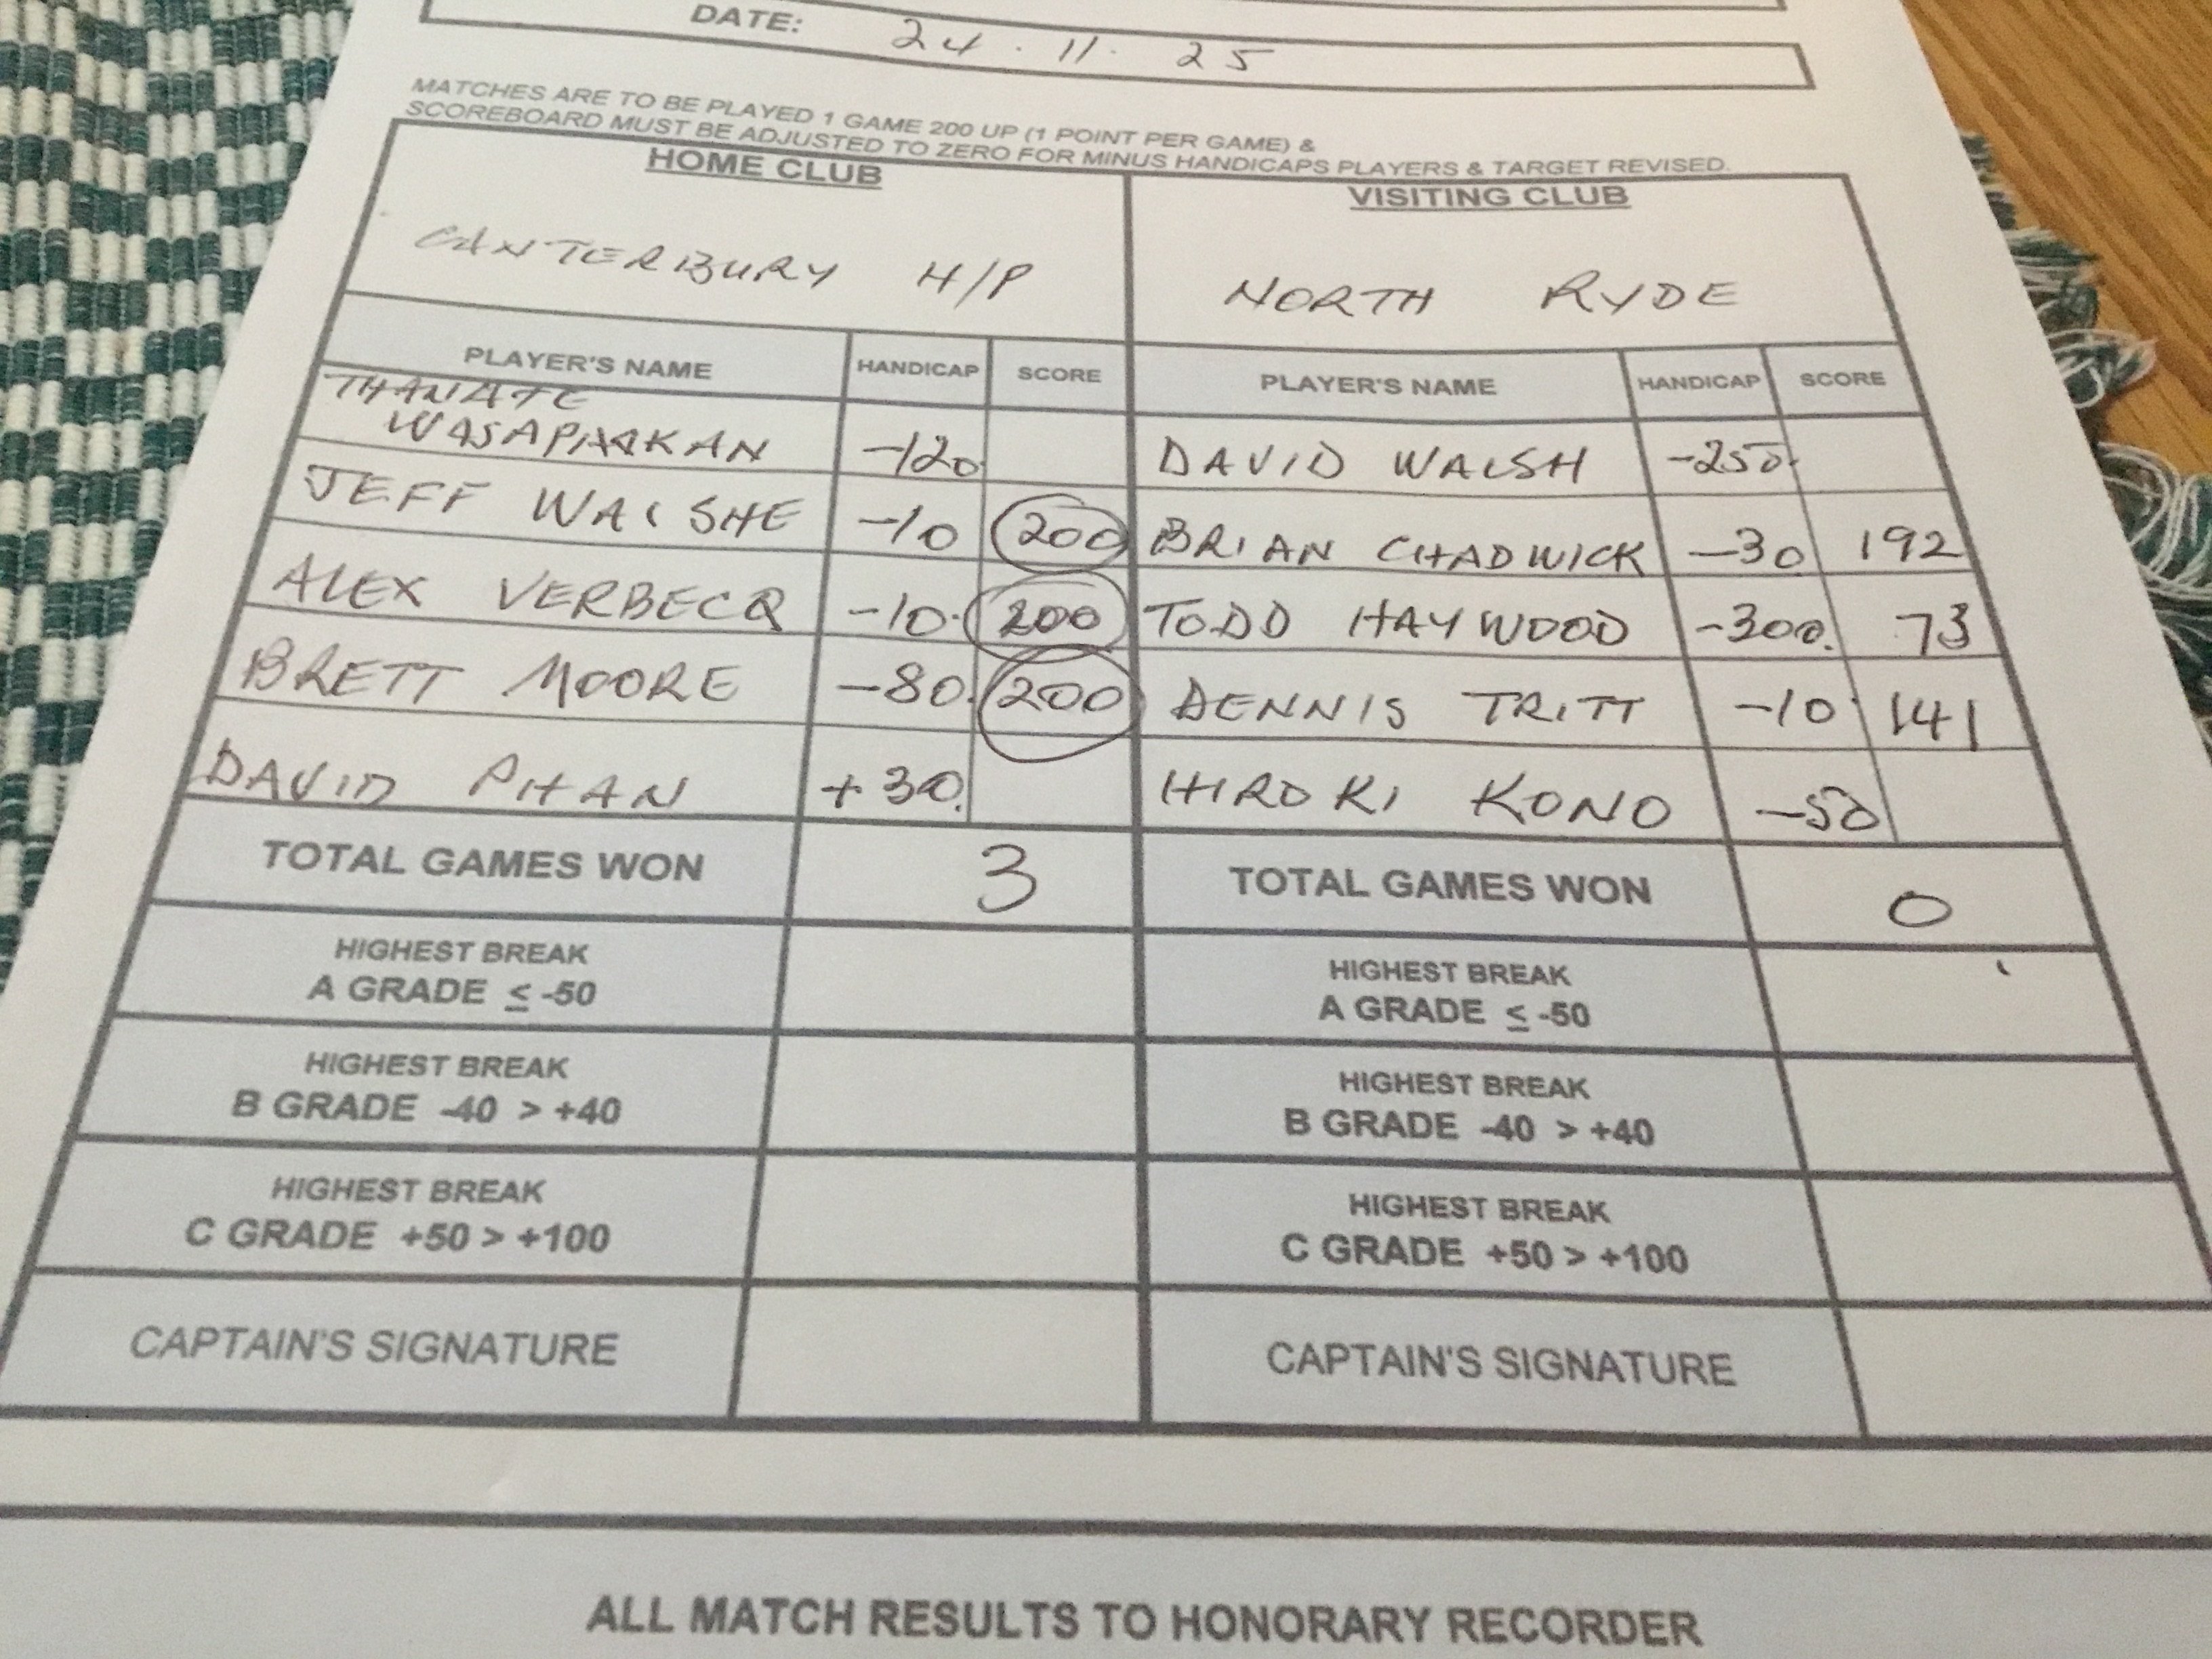 DATE: 24 . 11 . 25
MATCHES ARE TO BE PLAYED 1 GAME 200 UP (1 POINT PER GAME) &
SCOREBOARD MUST BE ADJUSTED TO ZERO FOR MINUS HANDICAPS PLAYERS & TARGET REVISED.
HOME CLUB VISITING CLUB
CANTERBURY H/P NORTH RYDE
PLAYER'S NAME HANDICAP SCORE PLAYER'S NAME HANDICAP SCORE
THANATE
WASAPHAKAN -120 DAVID WALSH -250
JEFF WALSHE -10 200 BRIAN CHADWICK -30 192
ALEX VERBECQ -10 200 TODD HAYWOOD -300 73
BRETT MOORE -80 200 DENNIS TRITT -10 141
DAVID PHAN +30 HIROKI KONO -50
TOTAL GAMES WON 3 TOTAL GAMES WON 0
HIGHEST BREAK HIGHEST BREAK
A GRADE ≤ -50 A GRADE ≤ -50
HIGHEST BREAK HIGHEST BREAK
B GRADE -40 > +40 B GRADE -40 > +40
HIGHEST BREAK HIGHEST BREAK
C GRADE +50 > +100 C GRADE +50 > +100
CAPTAIN'S SIGNATURE CAPTAIN'S SIGNATURE
ALL MATCH RESULTS TO HONORARY RECORDER